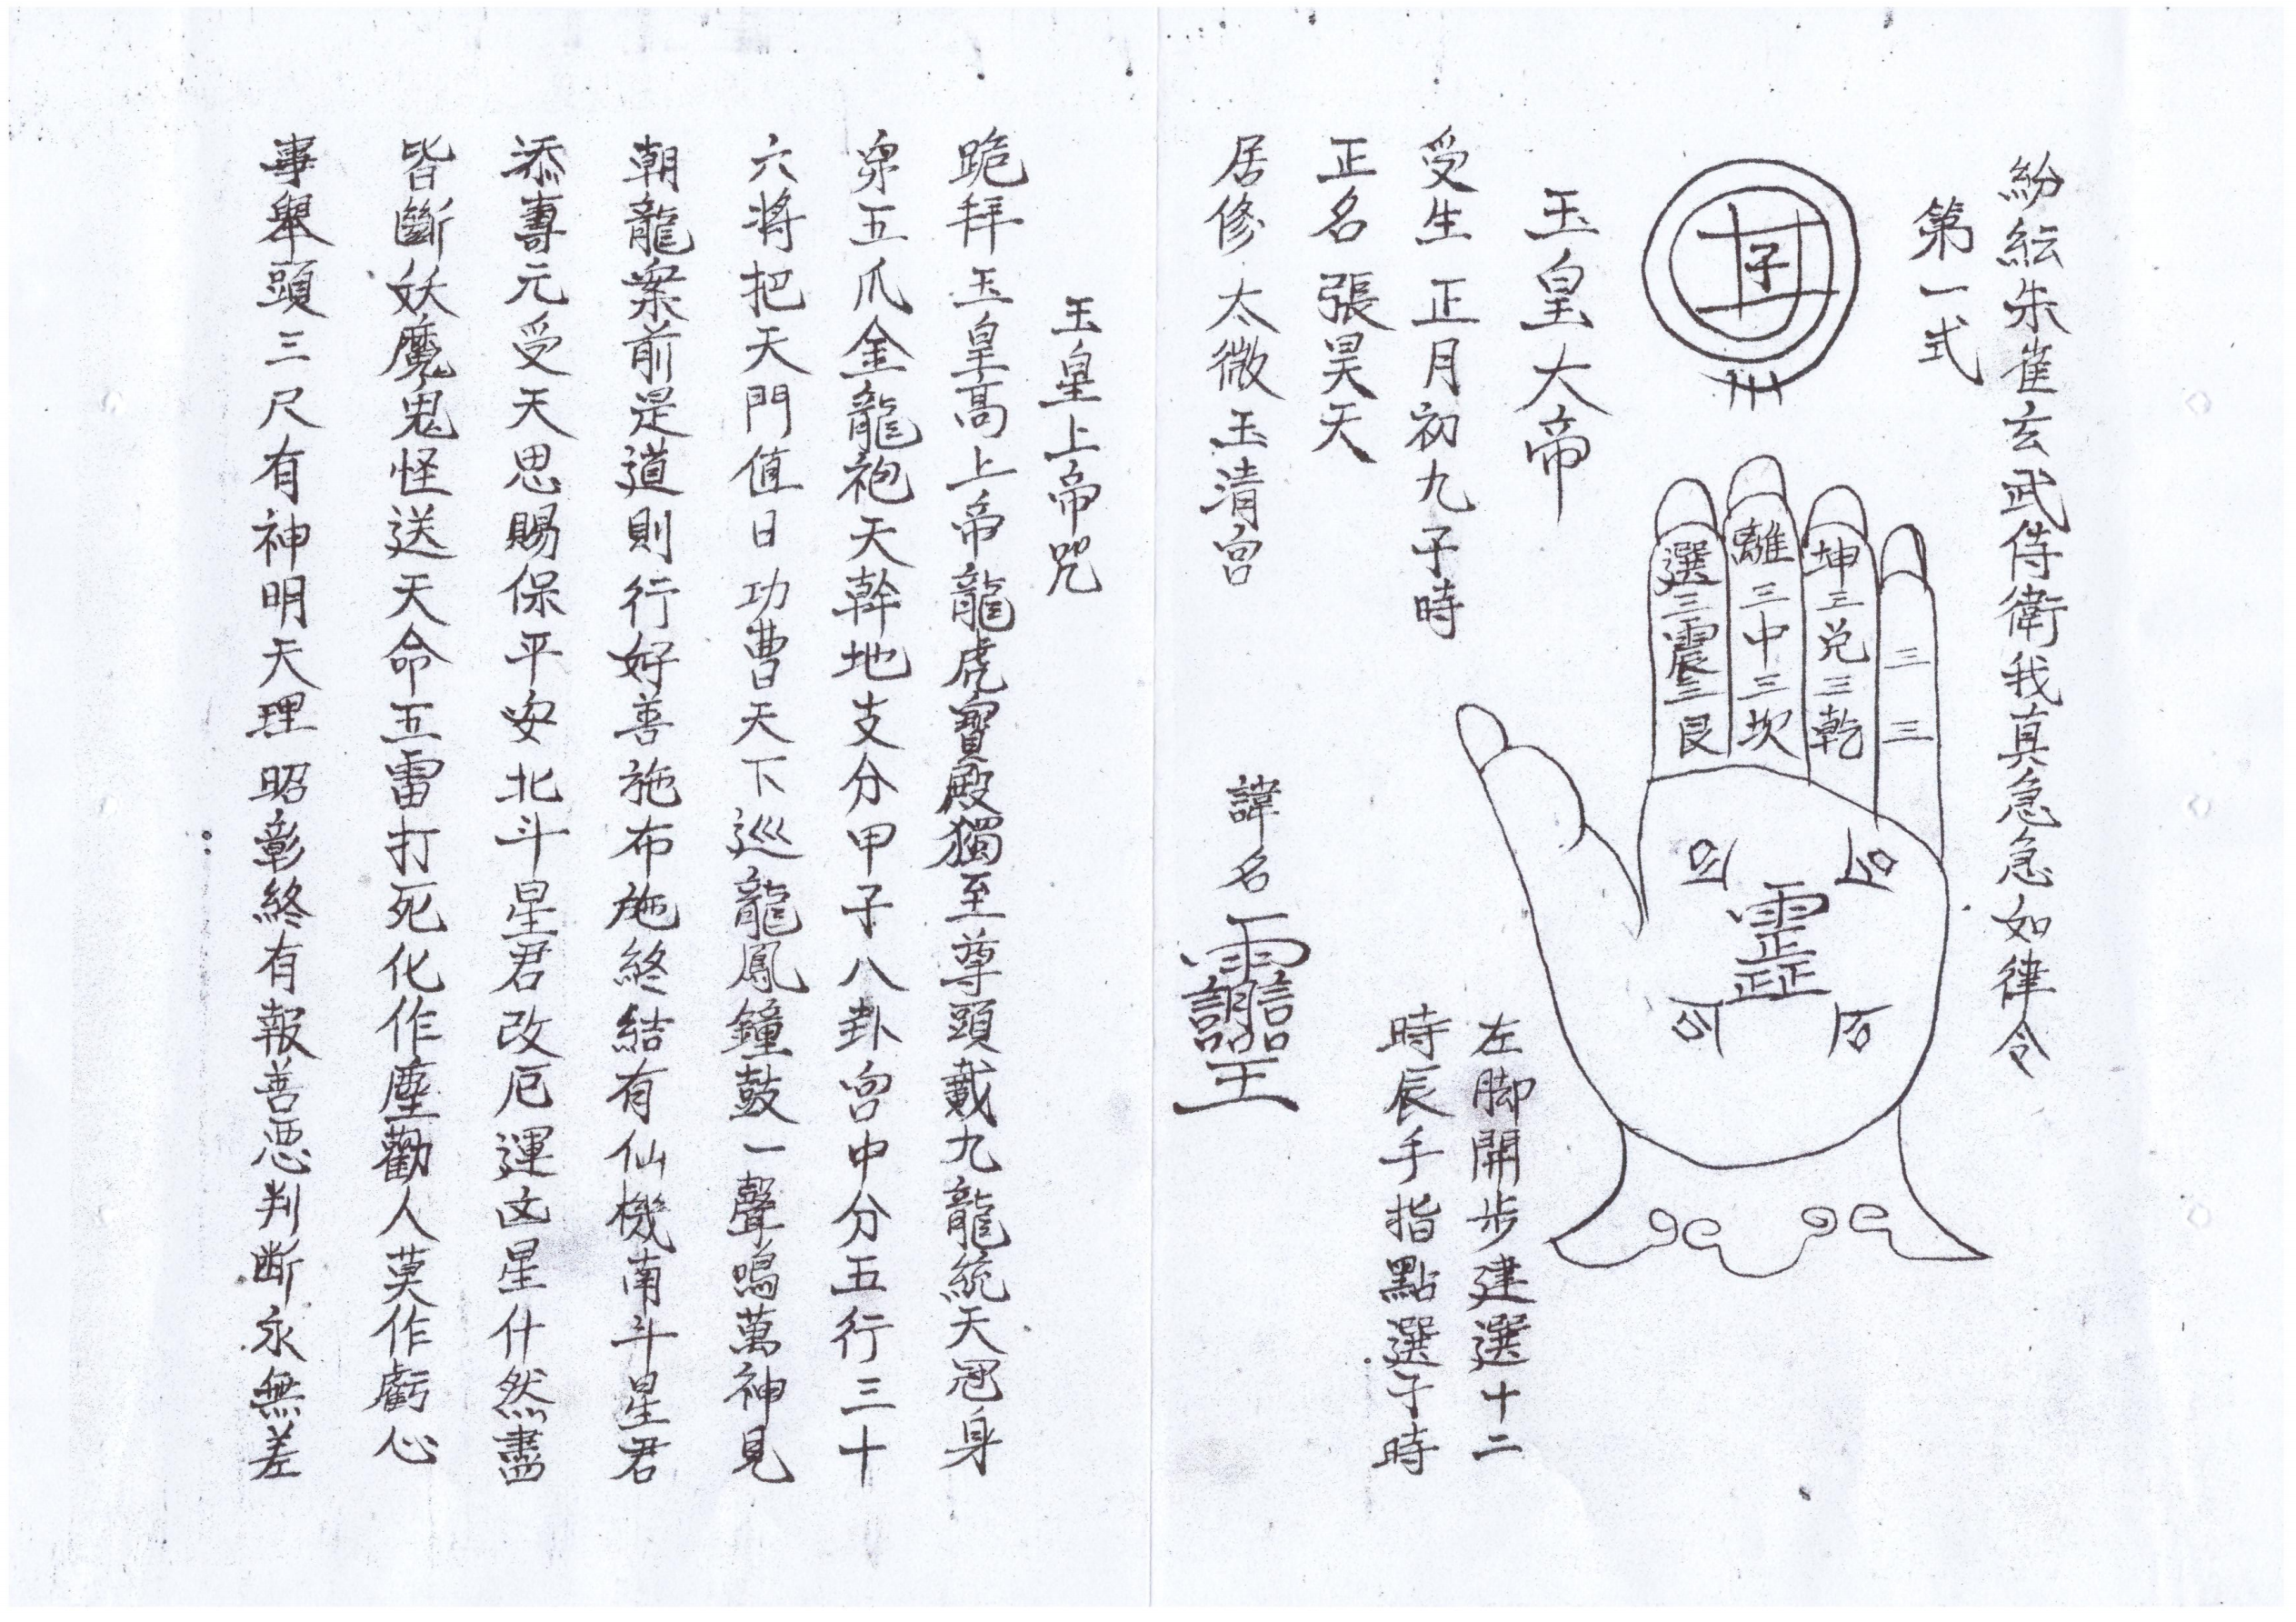 紛紜朱雀玄武侍衛我真急急如律令
第一式
子
玉皇大帝
受生 正月初九子時
正名 張昊天
居修 太微玉清宮
諱名
選三震三艮
離三中三坎
坤三兌三乾
三三
左脚開步建選十二
時辰手指點選子時
玉皇上帝咒
跪拜玉皇高上帝龍虎寶殿獨至尊頭戴九龍統天冠身
穿五爪金龍袍天幹地支分甲子八卦宮中分五行三十
六將把天門值日功曹天下巡龍鳳鐘鼓一聲鳴萬神見
朝龍案前是道則行好善施布施終結有仙機南斗星君
添壽元受天恩賜保平安北斗星君改厄運凶星什然盡
皆斷妖魔鬼怪送天命五雷打死化作塵勸人莫作虧心
事舉頭三尺有神明天理昭彰終有報善惡判斷永無差